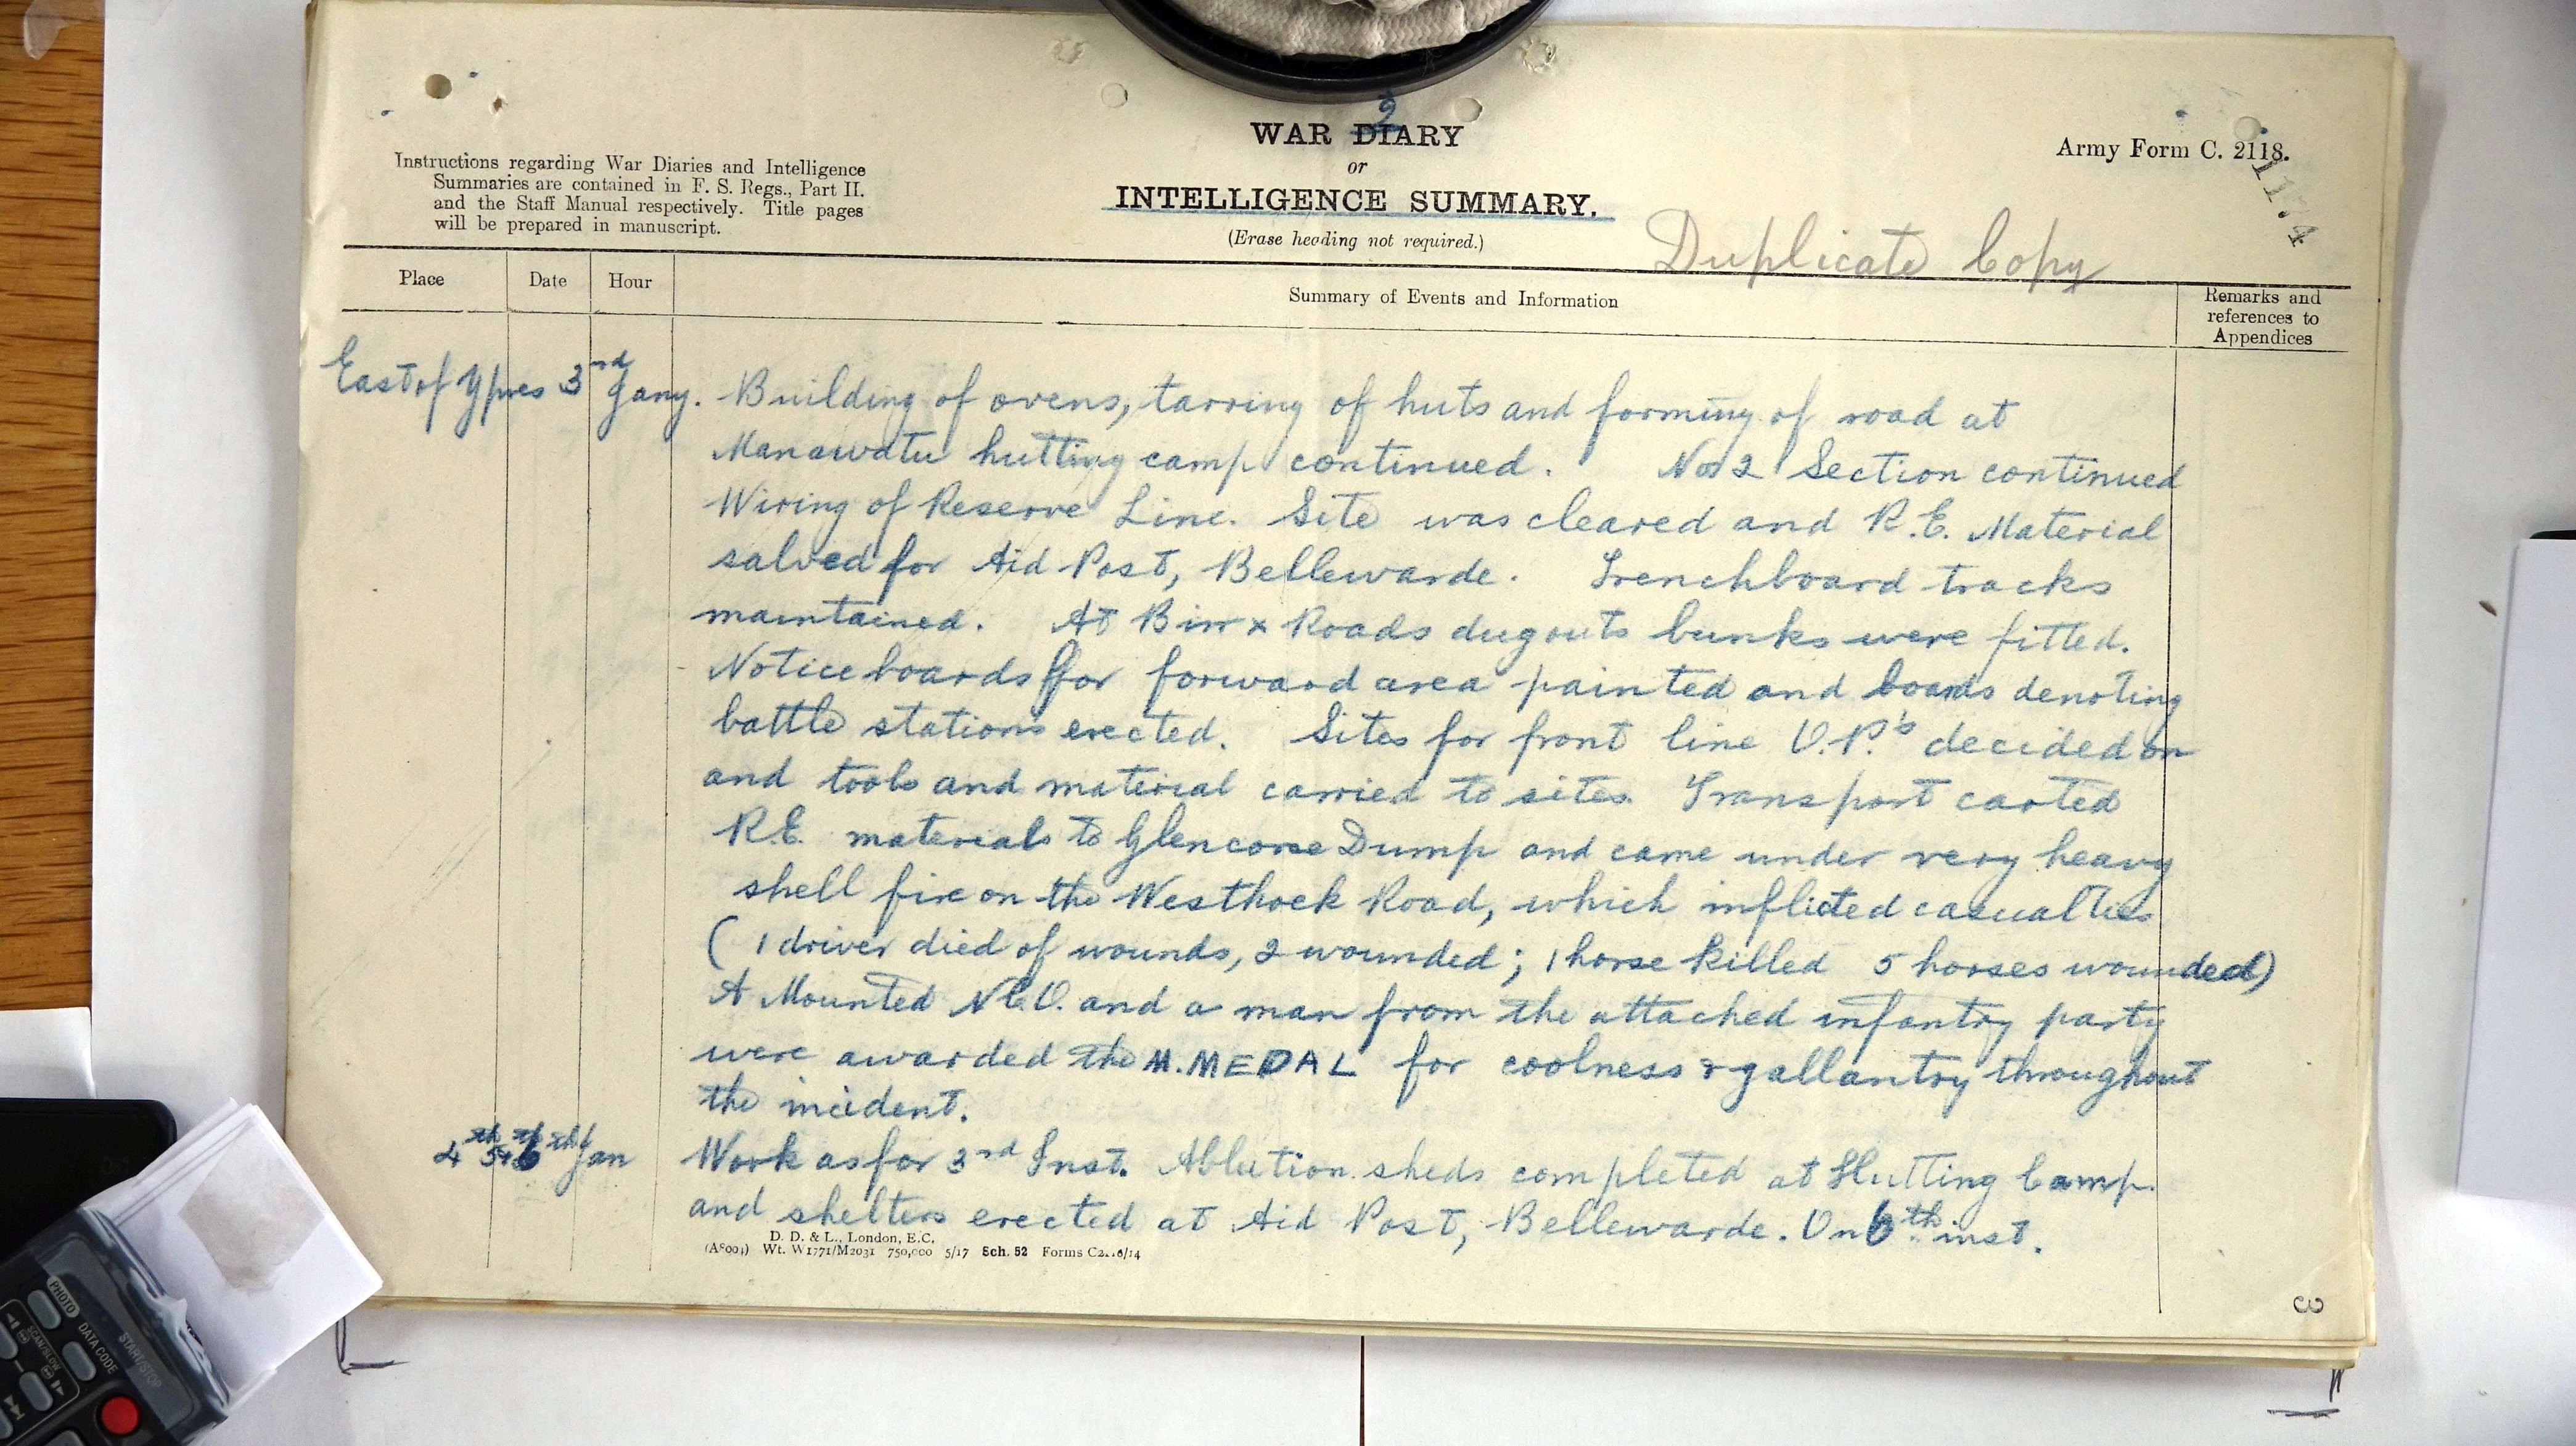 2
WAR DIARY
or
INTELLIGENCE SUMMARY.
(Erase heading not required.)
Army Form C. 2118.
Instructions regarding War Diaries and Intelligence
Summaries are contained in F. S. Regs., Part II.
and the Staff Manual respectively. Title pages
will be prepared in manuscript.
Duplicate Copy
Place Date Hour Summary of Events and Information Remarks and
references to
Appendices
East of Ypres 3rd Jany. Building of ovens, tarring of huts and forming of road at
Manawatu hutting camp continued. No 2 Section continued
Wiring of Reserve Line. Site was cleared and R.E. Material
salved for Aid Post, Bellewarde. Trenchboard tracks
maintained. At Birr x Roads dugouts bunks were fitted.
Notice boards for forward area painted and boards denoting
battle stations erected. Sites for front line O.P.'s decided on
and tools and material carried to sites. Transport carted
R.E. materials to Glencorse Dump and came under very heavy
shell fire on the Westhoek Road, which inflicted casualties
( 1 driver died of wounds, 2 wounded; 1 horse killed 5 horses wounded)
A Mounted N.C.O. and a man from the attached infantry party
were awarded the M.MEDAL for coolness & gallantry throughout
the incident.
4th 5th 6th Jan Work as for 3rd Inst. Ablution sheds completed at Hutting Camp
and shelters erected at Aid Post, Bellewarde. On 6th inst.
D. D. & L., London, E.C.
Wt. W1771/M2031 750,000 5/17 Sch. 52 Forms
3
PHOTO
DATA CODE
START/STOP
SCAN/SLOW